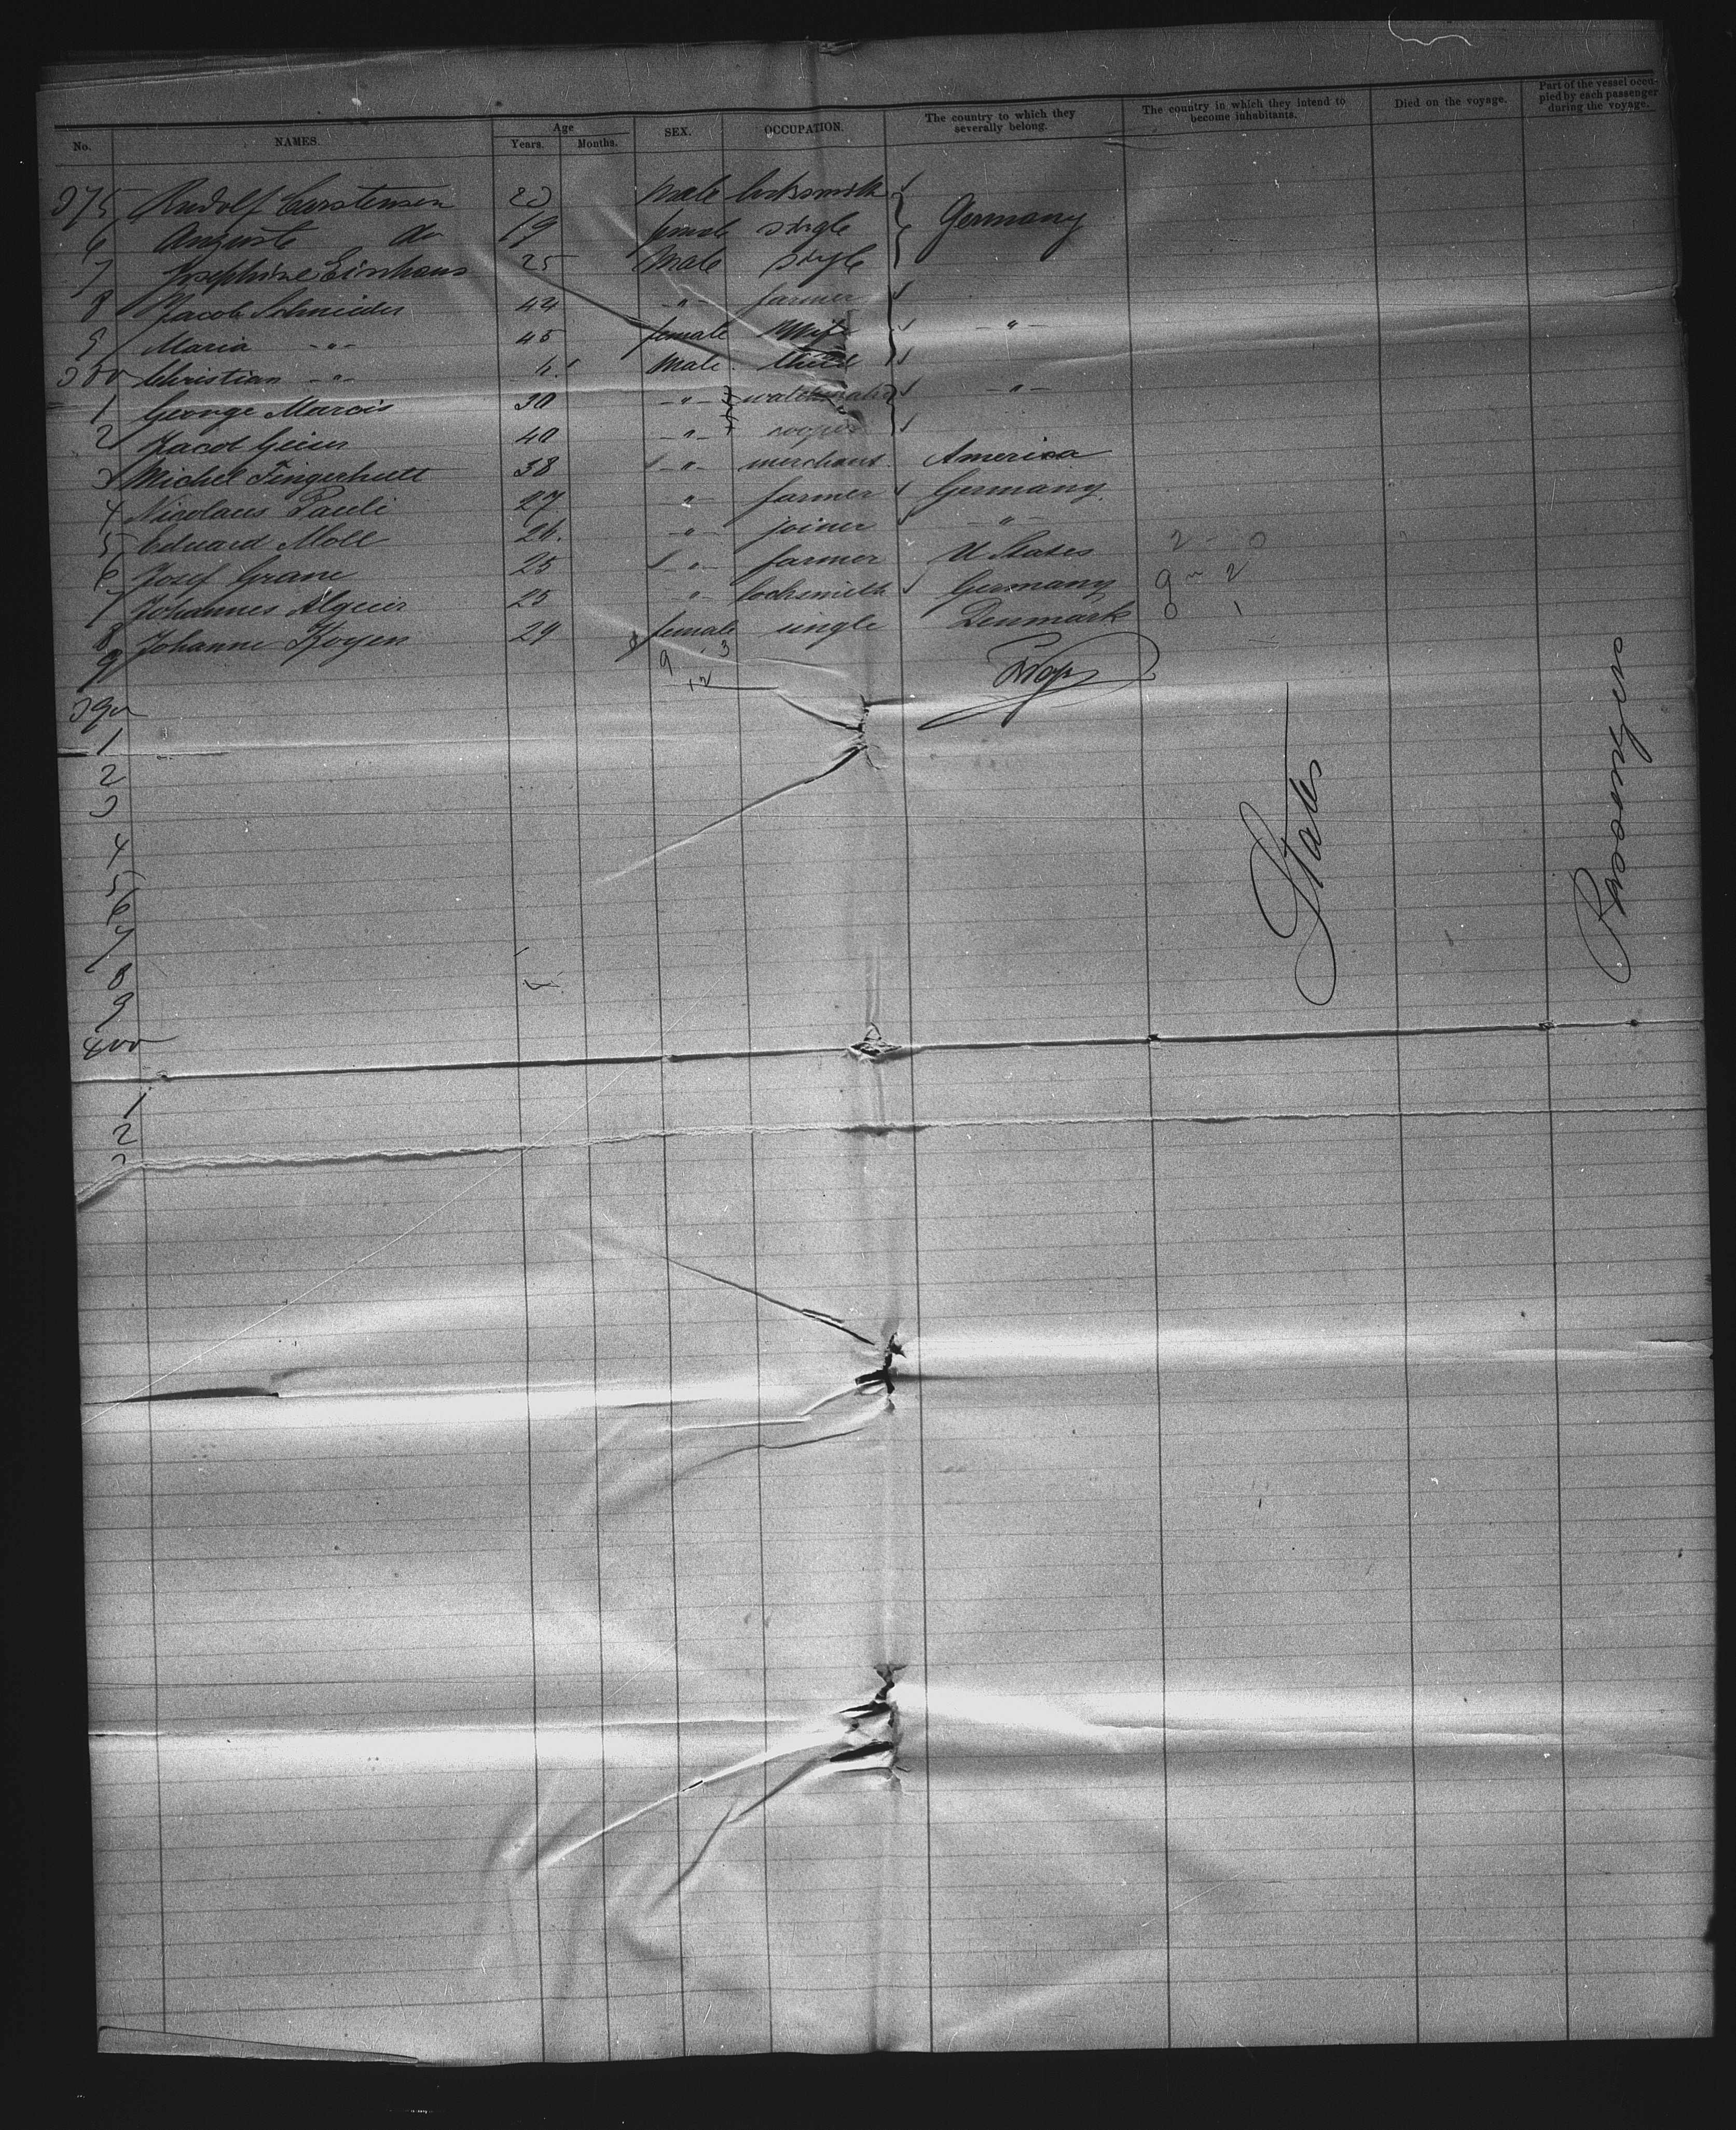 No. NAMES. Age Years. Months. SEX. OCCUPATION. The country to which they severally belong. The country in which they intend to become inhabitants. Died on the voyage. Part of the vessel occupied by each passenger during the voyage.
375 Rudolf Carstensen 23 Male locksmith Germany
6 Auguste do 19 female single
7 Josephine Einhaus 25 Male single
8 Jacob Schnieder 42 -"- farmer
9 Maria -"- 45 female Wife -"-
380 Christian -"- 4. Male Child
1 George Marcis 30 -"- watchmaker -"-
2 Jacob Geier 40 -"- cooper
3 Michel Fingerhutt 38 -"- merchant America
4 Nicolaus Pauli 27 -"- farmer Germany
5 Eduard Moll 26. -"- joiner -"-
6 Josef Grane 25 -"- farmer U States 2 - 0
7 Johannes Algeier 25 -"- locksmith Germany 9 - 2
8 Johanne Koyen 29 female single Denmark 0 1
9 9 3
12
390
1
2
3
4
5
6
7
8
9
400
1
2
States
Passengers